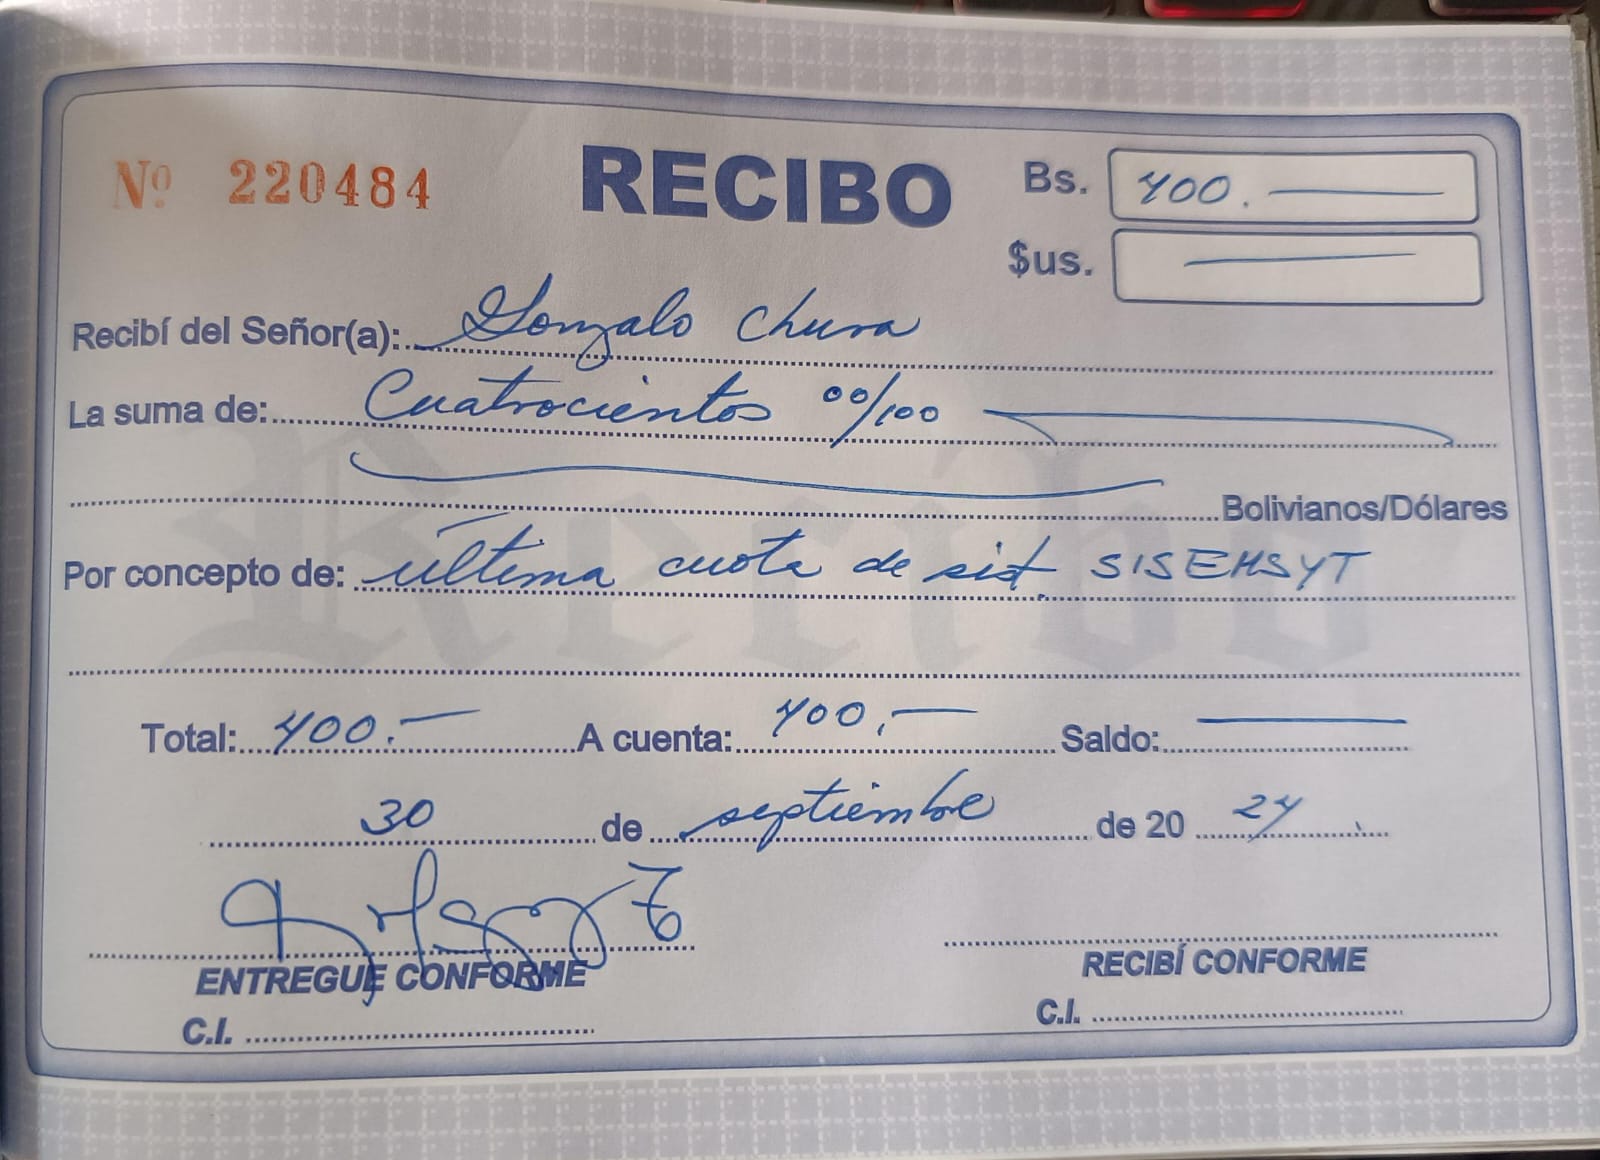 Nº 220484 RECIBO Bs. 400.
$us.
Recibí del Señor(a): Gonzalo Chura
La suma de: Cuatrocientos 00/100
Bolivianos/Dólares
Por concepto de: última cuota de sist. SISEMSYT
Total: 400.- A cuenta: 400,- Saldo:
30 de septiembre de 20 24
ENTREGUE CONFORME RECIBÍ CONFORME
C.I. C.I.
Recibo